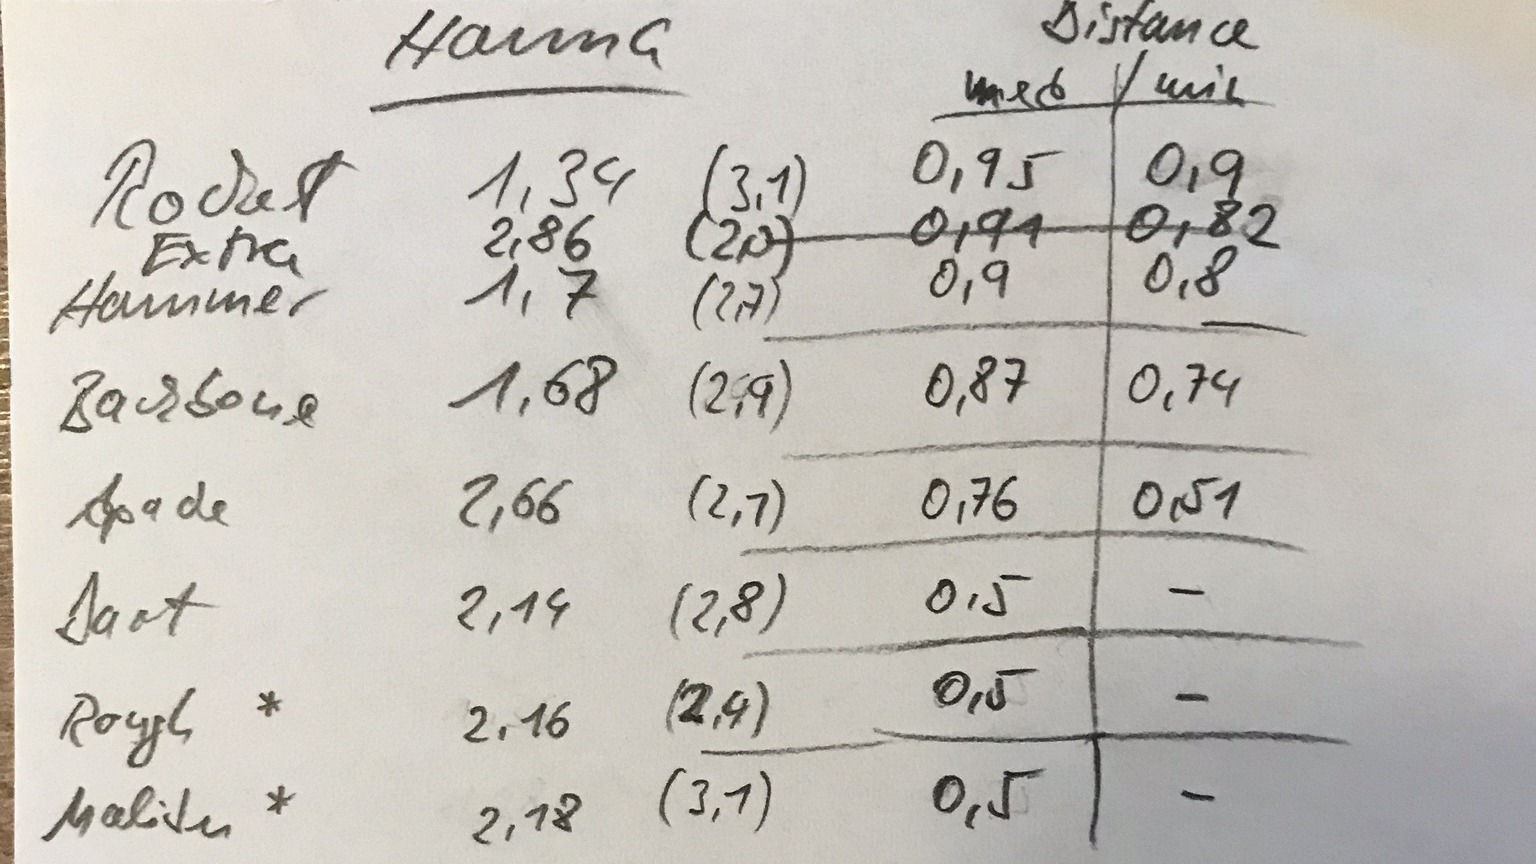 Hanna Distance
med / min
Rocket 1,34 (3,1) 0,95 0,9
Extra 2,86 (2,0) 0,91 0,82
Hammer 1,7 (2,7) 0,9 0,8
Backbone 1,68 (2,9) 0,87 0,74
Spade 2,66 (2,1) 0,76 0,51
Dart 2,14 (2,8) 0,5 -
Rough * 2,16 (2,4) 0,5 -
* 2,18 (3,1) 0,5 -